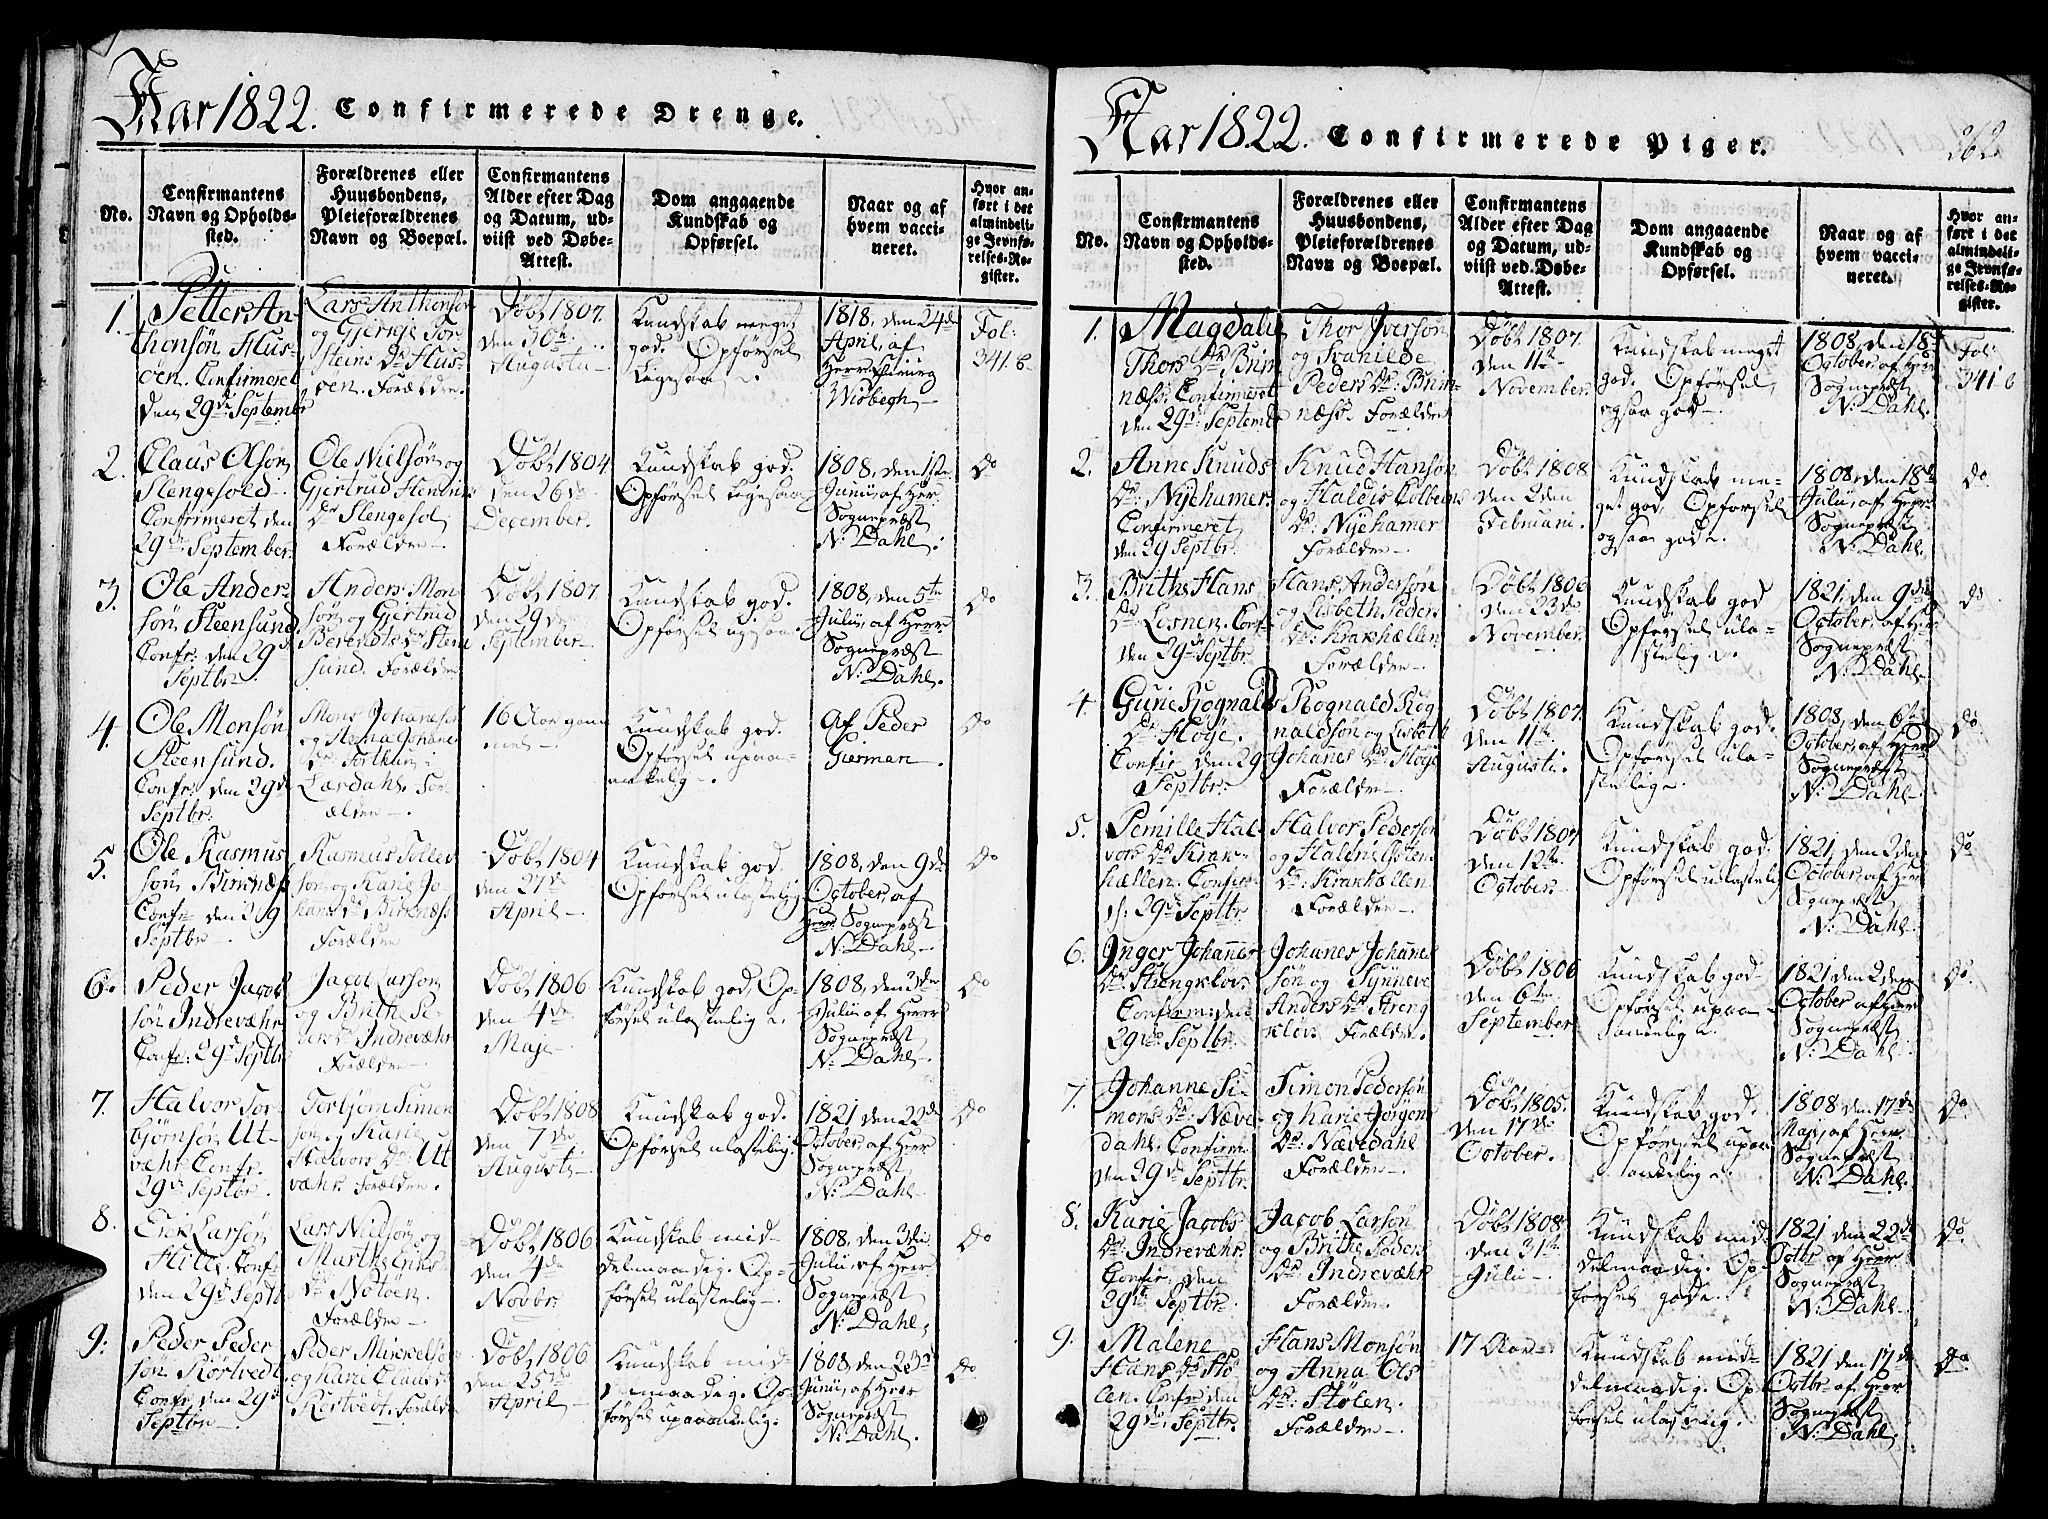 Aar 1822. Confirmerede Drenge.
No.
Confirmantens
Navn og Opholds-
sted.
Forældrenes eller
Huusbondens,
Pleieforældrenes
Navn og Boepæl.
Confirmantens
Alder efter Dag
og Datum, ud-
viist ved Døbe-
Attest.
Dom angaaende
Kundskab og
Opførsel.
Naar og af
hvem vacci-
neret.
Hvor an-
ført i det
almindeli-
ge Jevnfø-
relses-Re-
gister.
1.
Petter An-
thonsøn Hus-
øen. Confirmeret
den 29de Septembr
Lars Anthonsøn
og Gjertje Tor-
steins Dr Hus-
øen. Forældre.
Døbt 1807.
den 30te
Augustii
Kundskab meget
god. Opførsel
ligesaa
1818, den 24de
April, af
Herr
Wibegh
Fol:
341.b
2.
Claus Olsøn
Slengesold
Confirmeret den
29de September.
Ole Nielsøn og
Gjertrud Henrics
Dr Slengesol
Forældre
Døbt 1804
den 26de
December.
Kundskab god.
Opførsel ligesaa
1808, den 1ste
Junii, af Herr
Sognepræst
N: Dahl.
Do
3.
Ole Ander-
søn Steensund
Confr: den 29d
Septbr
Anders Mon-
søn og Gjertrud
Berendts Dr Steen
sund. Forældre
Døbt 1807
den 29de
September
Kundskab god.
Opførsel ogsaa
1808, den 5te
Julii, af Herr
Sognepræst
N: Dahl.
Do
4.
Ole Monsøn
Steensund.
Confr: den 29de
Septbr:
Mons Johanesøn
og Anna Johane
Dr Torthun
Lærdahl. For-
ældre
16 Aar gam
mel
Kundskab god.
Opførsel upaa-
ankelig
Af Peder
Giermen
Do
5.
Ole Rasmus
søn Birknæs
Confr den 29
Septbr
Rasmus Tollev
søn og Karie Jo-
hans Dr Birknæss
Forældre
Døbt 1804
den 27de
April
Kundskab god
Opførsel ulastelig
1808, den 9de
October, af
Herr Sognepræst
N: Dahl
Do
6.
Peder Jacob
søn Indrevæhr.
Confr: 29d Septbr
Jacob Larsøn
og Brithe Pe-
ders Dr Indrevæhr
Forældre
Døbt 1806
den 4de
Maje
Kundskab god, Op-
førsel ulastelig
1808, den 3die
Julii, af Herr
Sognepræst
N: Dahl
Do
7.
Halvor Tor-
bjørnsøn Ut-
væhr. Confr.
29de Septbr.
Torbjørn Simen
søn og Karie
Halvors Dr Ut
væhr. Forældre.
Døbt 1808
den 7de
Augustii
Kundskab god.
Opførsel ulastelig.
1821 den 22de
October, af Herr
Sognepræst
N: Dahl
Do
8.
Erik Larsøn
Hille. Confr
den 29d Septb
Lars Nielsøn og
Marthe Erics
Dr Nøtøen
Forældre
Døbt 1806
den 4de
Novbr.
Kundskab mid-
delmaadig. Op-
førsel ulastelig
1808, den 3die
Julii, af Herr
Sognepræst
N: Dahl,
Do
9.
Peder Peder
søn Kiørtvedt
Confr den 29d
Septbr
Peder Mikkelsøn
og Karie Claus Dr
Kortvedt. Forældre
Døbt 1806
den 25de
April
Kundskab mid-
delmaadig. Op-
førsel upaaankelig.
1808, den 23de
Junii, af Herr
Sognepræst
N: Dahl.
Do
Aar 1822. Confirmerede Piger.
262
No.
Confirmantens
Navn og Opholds-
sted.
Forældrenes eller
Huusbondens,
Pleieforældrenes
Navn og Boepæl.
Confirmantens
Alder efter Dag
og Datum, ud-
viist ved Døbe-
Attest.
Dom angaaende
Kundskab og
Opførsel.
Naar og af
hvem vacci-
neret.
Hvor an-
ført i det
almindeli-
ge Jevnfø-
relses-Re-
gister.
1.
Magdalie
Thors Dr Brim
næss. Confirmeret
den 29de Septembr
Thor Jversøn
og Svanilde
Peders Dr: Brim-
næss. Forældre
Døbt 1807.
den 11te
November.
Kundskab meget
god. Opførsel
ogsaa god
1808, den 18de
October, af Herr
Sognepræst
N: Dahl.
Fol:
341.b
2.
Anne Knuds
Dr: Nyehamer.
Confirmeret
den 29 Septbr.
Knud Hansøn
og Haldis Colbeins
Dr: Nyehamer
Forældre
Døbt 1808
den 2den
Februarii.
Kundskab me-
get god. Opførsel
ogsaa god
1808, den 18de
Julii, af Herr
Sognepræst
N: Dahl.
Do
3.
Brithe Hans
Dr. Losnen. Conf-
den 29de Septbr.
Hans Andersøn
og Lisbeth Peder
Dr: Krakhællen
Forældre
Døbt 1806
den 23de
November.
Kundskab god
Opførsel ula-
stelig
1821, den 9de
October, af Herr
Sognepræst
N: Dahl.
Do
4.
Gurie Rognalds
Dr Høye.
Confir. den 29
Septbr.
Rognald Rog
naldsøn og Lisbeth
Johanes Dr Høye
Forældre
Døbt 1807.
den 11te
Augustii.
Kundskab god.
Opførsel ula-
stelig
1808, den 6te
October, af Herr
Sognepræst
N: Dahl
Do.
5.
Pernille Hal-
vors Dr Krak-
hællen. Confir
d: 29de Septbr
Halvor Pedersøn
og
Dr: Krakhællen
Forældre
Døbt 1807
den 12te
October.
Kundskab god.
Opførsel ulastelig
1821, den 2den
October, af Herr
Sognepræst
N: Dahl
Do
6.
Jnger Johannes
Dr Strengklov.
Confirm: den
29de Septbr.
Johanes Johanne
søn og Synneve
Anders Dr Streng
klev. Forældre.
Døbt 1806
den 6te
September
Kundskab god
Opførsel upaa-
ankelig
1821 den 2den
October af Herr
Sognepræst
N: Dahl
Do.
7.
Johanne Si-
mons Dr: Næve-
dahl. Confirm
den 29de Septbr
Simon Pedersøn
og Karie Jørgen
Dr: Nævedahl
Forældre
Døbt 1805.
den 17de
October.
Kundskab god.
Opførsel upaa
ankelig
1808 den 17de
Maji, af Herr.
Sognepræst
N: Dahl.
Do.
8.
Karie Jacobs
Dr. Indrevæhr.
Confir. den
29de Septbr.
Jacob Larsøn
og Brithe Peders
Dr. Indrevæhr
Forældre.
Døbt 1808.
den 31te
Julii
Kundskab mid-
delmaadig. Op-
førsel god
1821 den 22de
Octbr af Herr
Sognepræst
N: Dahl
Do.
9.
Malene
Hans Dr Stø-
len. Confr den
29de Septbr.
Hans Monsøn
og Anna Ols
Dr: Stølen.
Forældre
17 Aar
Kundskab mid-
delmaadig. Op-
førsel ulastelig.
1821 den 17de
Octbr af Herr
Sognepræst
N: Dahl.
Do